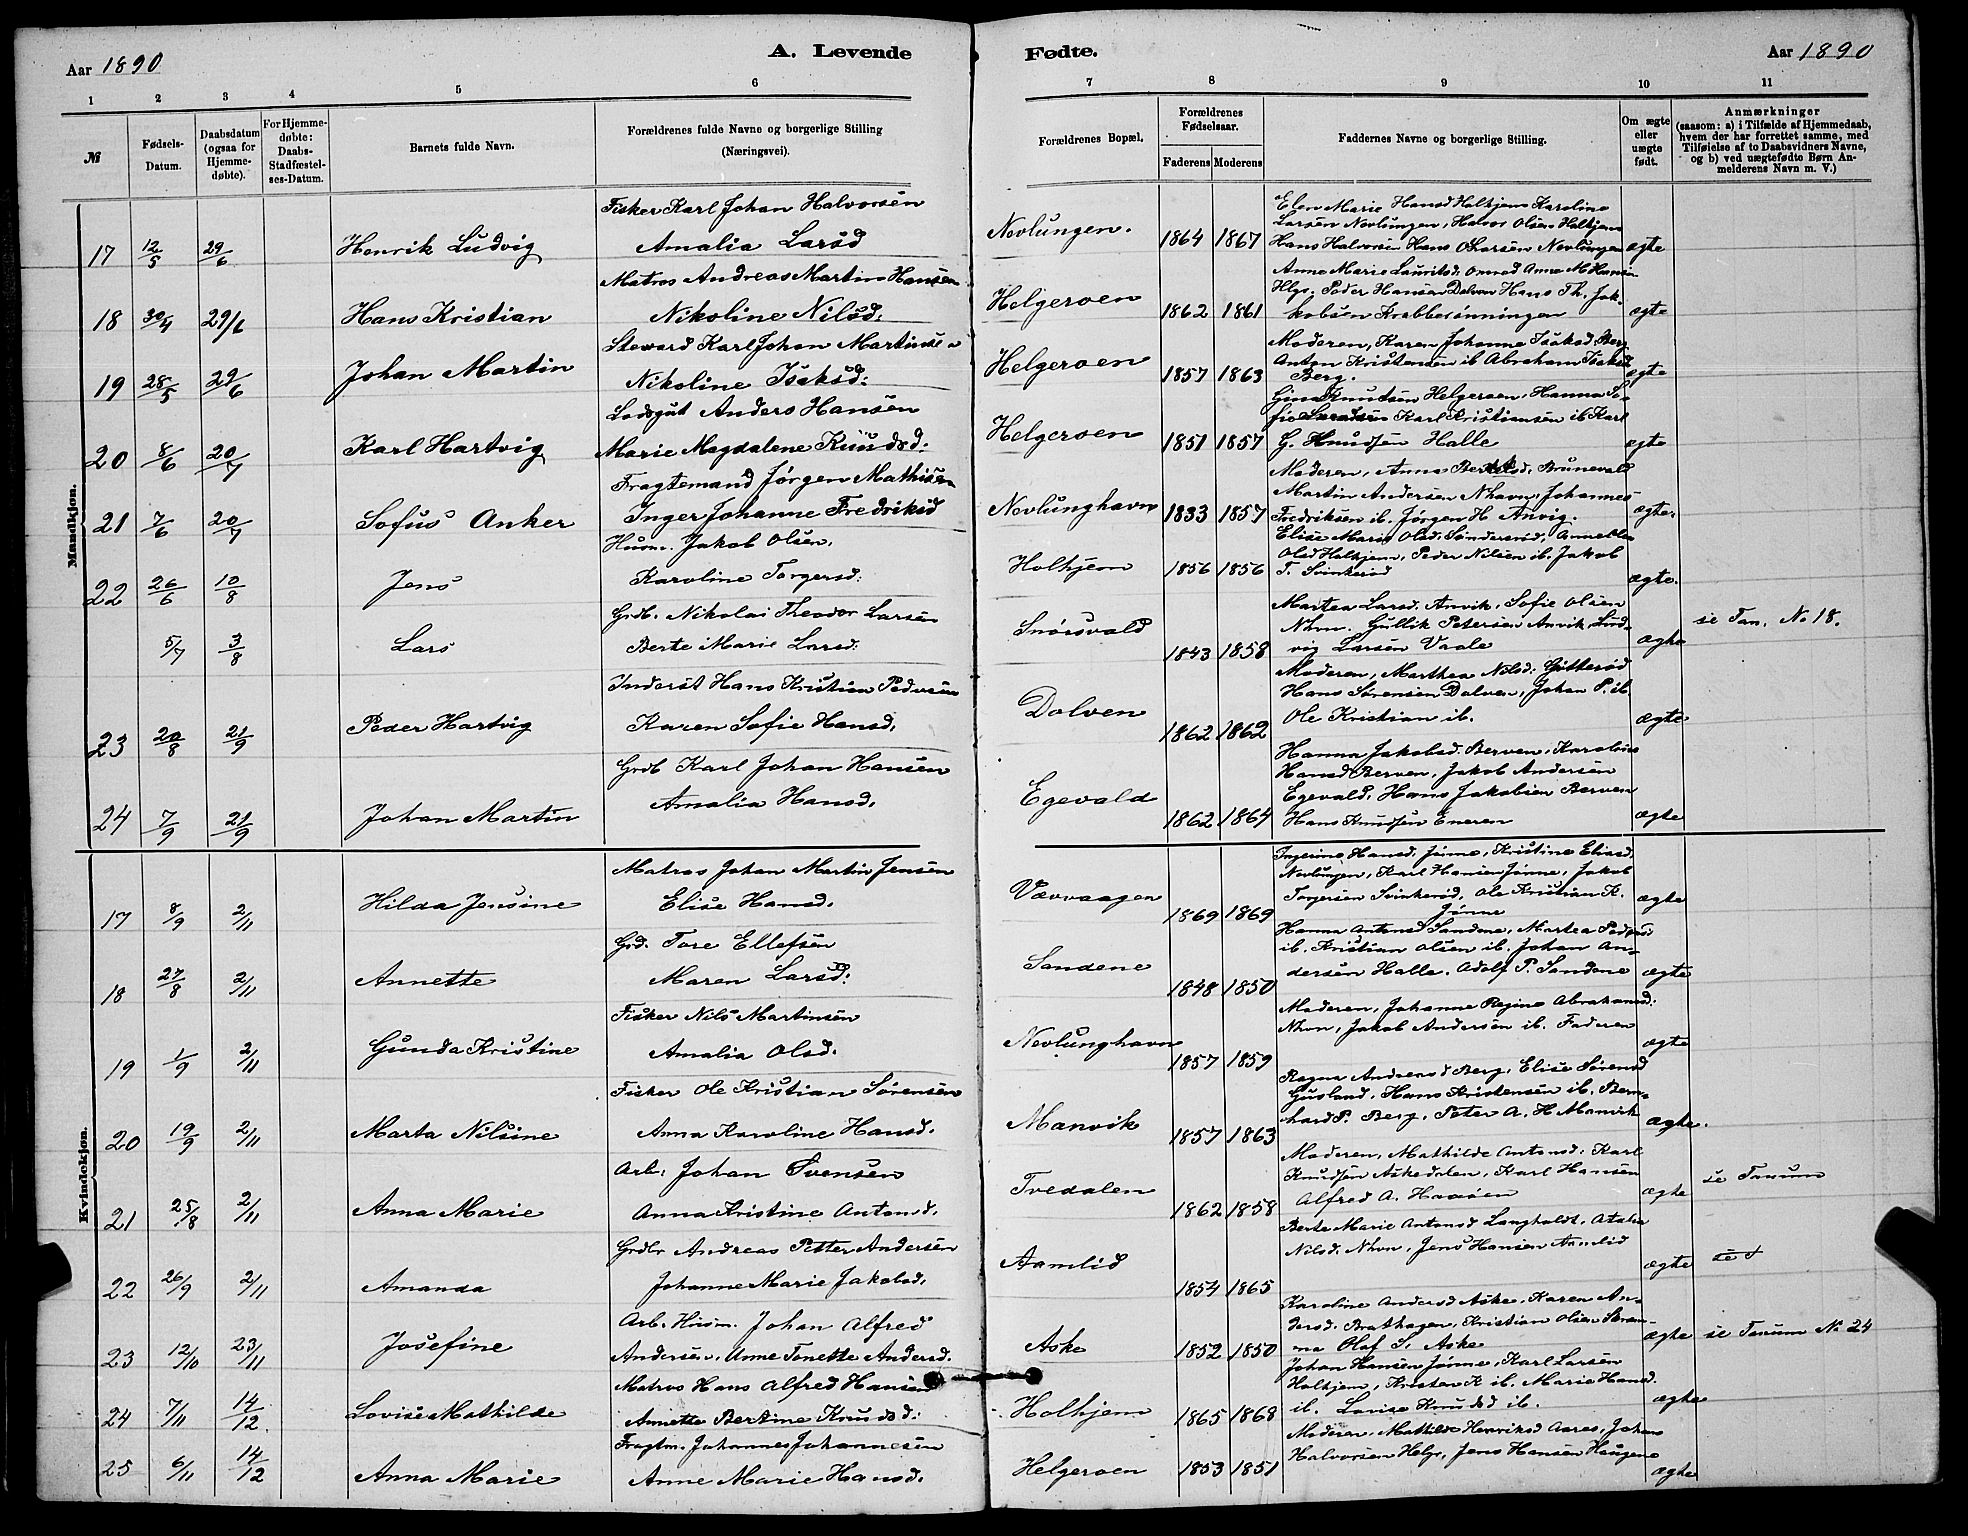 Aar 1890
A. Levende
Fødte.
Aar 1890
1 2 3 4 5 6 7 8 9 10 11
№
Fødsels-Datum.
Daabsdatum (ogsaa for Hjemme-døbte).
For Hjemme-døbte: Daabs-Stadfæstel-ses-Datum.
Barnets fulde Navn.
Forældrenes fulde Navne og borgerlige Stilling (Næringsvei).
Forældrenes Bopæl.
Forældrenes Fødselsaar.
Faderens Moderens
Faddernes Navne og borgerlige Stilling.
Om ægte eller uægte født.
Anmærkninger
(saasom: a) i Tilfælde af Hjemmedaab, hvem der har forrettet samme, med Tilføielse af to Daabsvidners Navne, og b) ved uægtefødte Børn Anmelderens Navn m. V.)
Mandkjøn.
17 12/5 29/6 Henrik Ludvig
Fisker Karl Johan Halvorsen
Amalia Larsd
Nevlungen. 1864 1867
Elen Marie Hansd Holtjem Karoline
Larsen Nevlungen, Halvor Olsen Holtjem
Hans Halvorsen Hans O Larsen Nevlungen
ægte
18 30/4 29/6 Hans Kristian
Matros Andreas Martin Hansen
Nikoline Nilsd.
Helgeroen 1862 1861
Anne Marie Lauritsd. Omrod Anne M Hansen
Hlgr. Peder Hansen Dolven Hans Th. Jak-
kobsen Krabbesønningen
ægte
19 28/5 29/6 Johan Martin
Steward Karl Johan Martinsen
Nikoline Isaksd:
Helgeroen 1857 1863
Moderen, Karen Johanne Isaksd. Berg
Anton Kristensen ib Abraham Isaksen
Berg.
ægte
20 8/6 20/7 Karl Hartvig
Lodsgut Anders Hansen
Marie Magdalene Knudsd.
Helgeroen 1851 1857
Gina Knudsen Helgeroen, Hanna So-
fie Karl Kristiansen ib Karl
G. Knudsen Halle
ægte
21 7/6 20/7 Sofus Anker
Fragtemand Jørgen Mathisen
Inger Johanne Fredriksd
Nevlunghavn 1833 1857
Moderen, Anna Brunevald
Martin Andersen Nhavn, Johannes
Fredriksen ib. Jørgen H. Anvig.
ægte.
22 26/6 10/8 Jens
Husm. Jakob Olsen.
Karoline Torgersd:
Holtjem 1856 1856
Elise Marie Olsd. Søndersrød,
Olsd Holtjem, Peder Nilsen ib. Jakob
T. Svinkerød
ægte.
5/7 3/8 Lars
Grdb. Nikolai Theodor Larsen
Berte Marie Larsd:
Snørsvald 1843 1858
Martea Larsd. Anvik, Sofie Olsen
Nhvn. Gullik Petersen Anvik, Lud-
vig Larsen Vaale
ægte
se Tan. No 18.
23 20/8 21/9 Peder Hartvig
Inderst Hans Kristian Pedersen
Karen Sofie Hansd.
Dolven 1862 1862
Moderen, Marthea Nilsd. Gotterød
Hans Sørensen Dolven, Johan P. ib
Ole Kristian ib.
ægte
24 7/9 21/9 Johan Martin
Grdb Karl Johan Hansen
Amalia Hansd.
Egevald 1862 1864
Hanna Jakobsd. Berven, Karoline
Hansd Berven, Jakob Andersen
Egevald, Hans Jakobsen Berven
Hans Knudsen Eneren
ægte
Kvindekjøn.
17 8/9 2/11 Hilda Jensine
Matros Johan Martin Jensen
Elise Hansd.
Vævvaagen 1869 1869
Ingerine Hansd. Jønne, Kristine Eliasd.
Nevlungen, Karl Hansen Jønne, Jakob
Torgersen Svinkerød, Ole Kristian K.
Jønne
ægte
18 27/8 2/11 Annette
Grd. Tore Ellefsen
Maren Larsd:
Sandene 1848 1850
Hanna Antonsd Sandene, Martea Pedersd
ib. Kristian Olsen ib. Johan An-
dersen Halle. Adolf P. Sandene
ægte
19 1/9 2/11 Gunda Kristine
Fisker Nils Martinsen
Amalia Olsd.
Nevlunghavn 1857 1859
Moderen, Johanne Regine Abrahamsd.
Nhvn, Jakob Andersen ib. Faderen
ægte
20 19/9 2/11 Marta Nilsine
Fisker Ole Kristian Sørensen
Anna Karoline Hansd.
Manvik 1857 1863
Ragna Andreasd Berg, Elise Sørensd
Gusland, Hans Kristensen ib. Bern-
hard P. Berg, Peter A. H. Manvik
ægte.
21 25/8 2/11 Anna Marie
Arb. Johan Svensen
Anna Kristine Antonsd.
Tvedalen 1862 1858
Moderen, Mathilde Antonsd. Karl
Knudsen Askedalen, Karl Hansen
Alfred A. Haasen
ægte
se Tanum
22 26/9 2/11 Amanda
Grdbr Andreas Petter Andersen
Johanne Marie Jakobsd.
Aamlid 1854 1865
Berte Marie Antonsd Langholdt, Atalie
Nilsd. Nhvn, Jens Hansen Aamlid
ægte
23 12/10 23/11 Josefine
Arb. Husm. Johan Alfred
Andersen, Anne Tonette Andersd.
Aske 1852 1850
Karoline Andersd Aske, Karen An-
dersd. Bratthagen, Kristian Olsen
Olaf S. Aske
ægte
se Tanum No 24
24 7/11 14/12 Lovise Mathilde
Matros Hans Alfred Hansen
Annette Bertine Knudsd.
Holtjem 1865 1868
Johan Hansen Jønne, Karl Larsen
Holtjem, Kristen K ib. Marie Hansd.
ib. Lovise Knudsd ib.
ægte
25 6/11 14/12 Anna Marie
Fragtm. Johannes Johannesen
Anne Marie Hansd.
Helgeroen 1853 1851
Moderen, Mathilde Henriksd Aarøs, Johans
Halvorsen Helgr, Jens Hansen Haugene
ægte